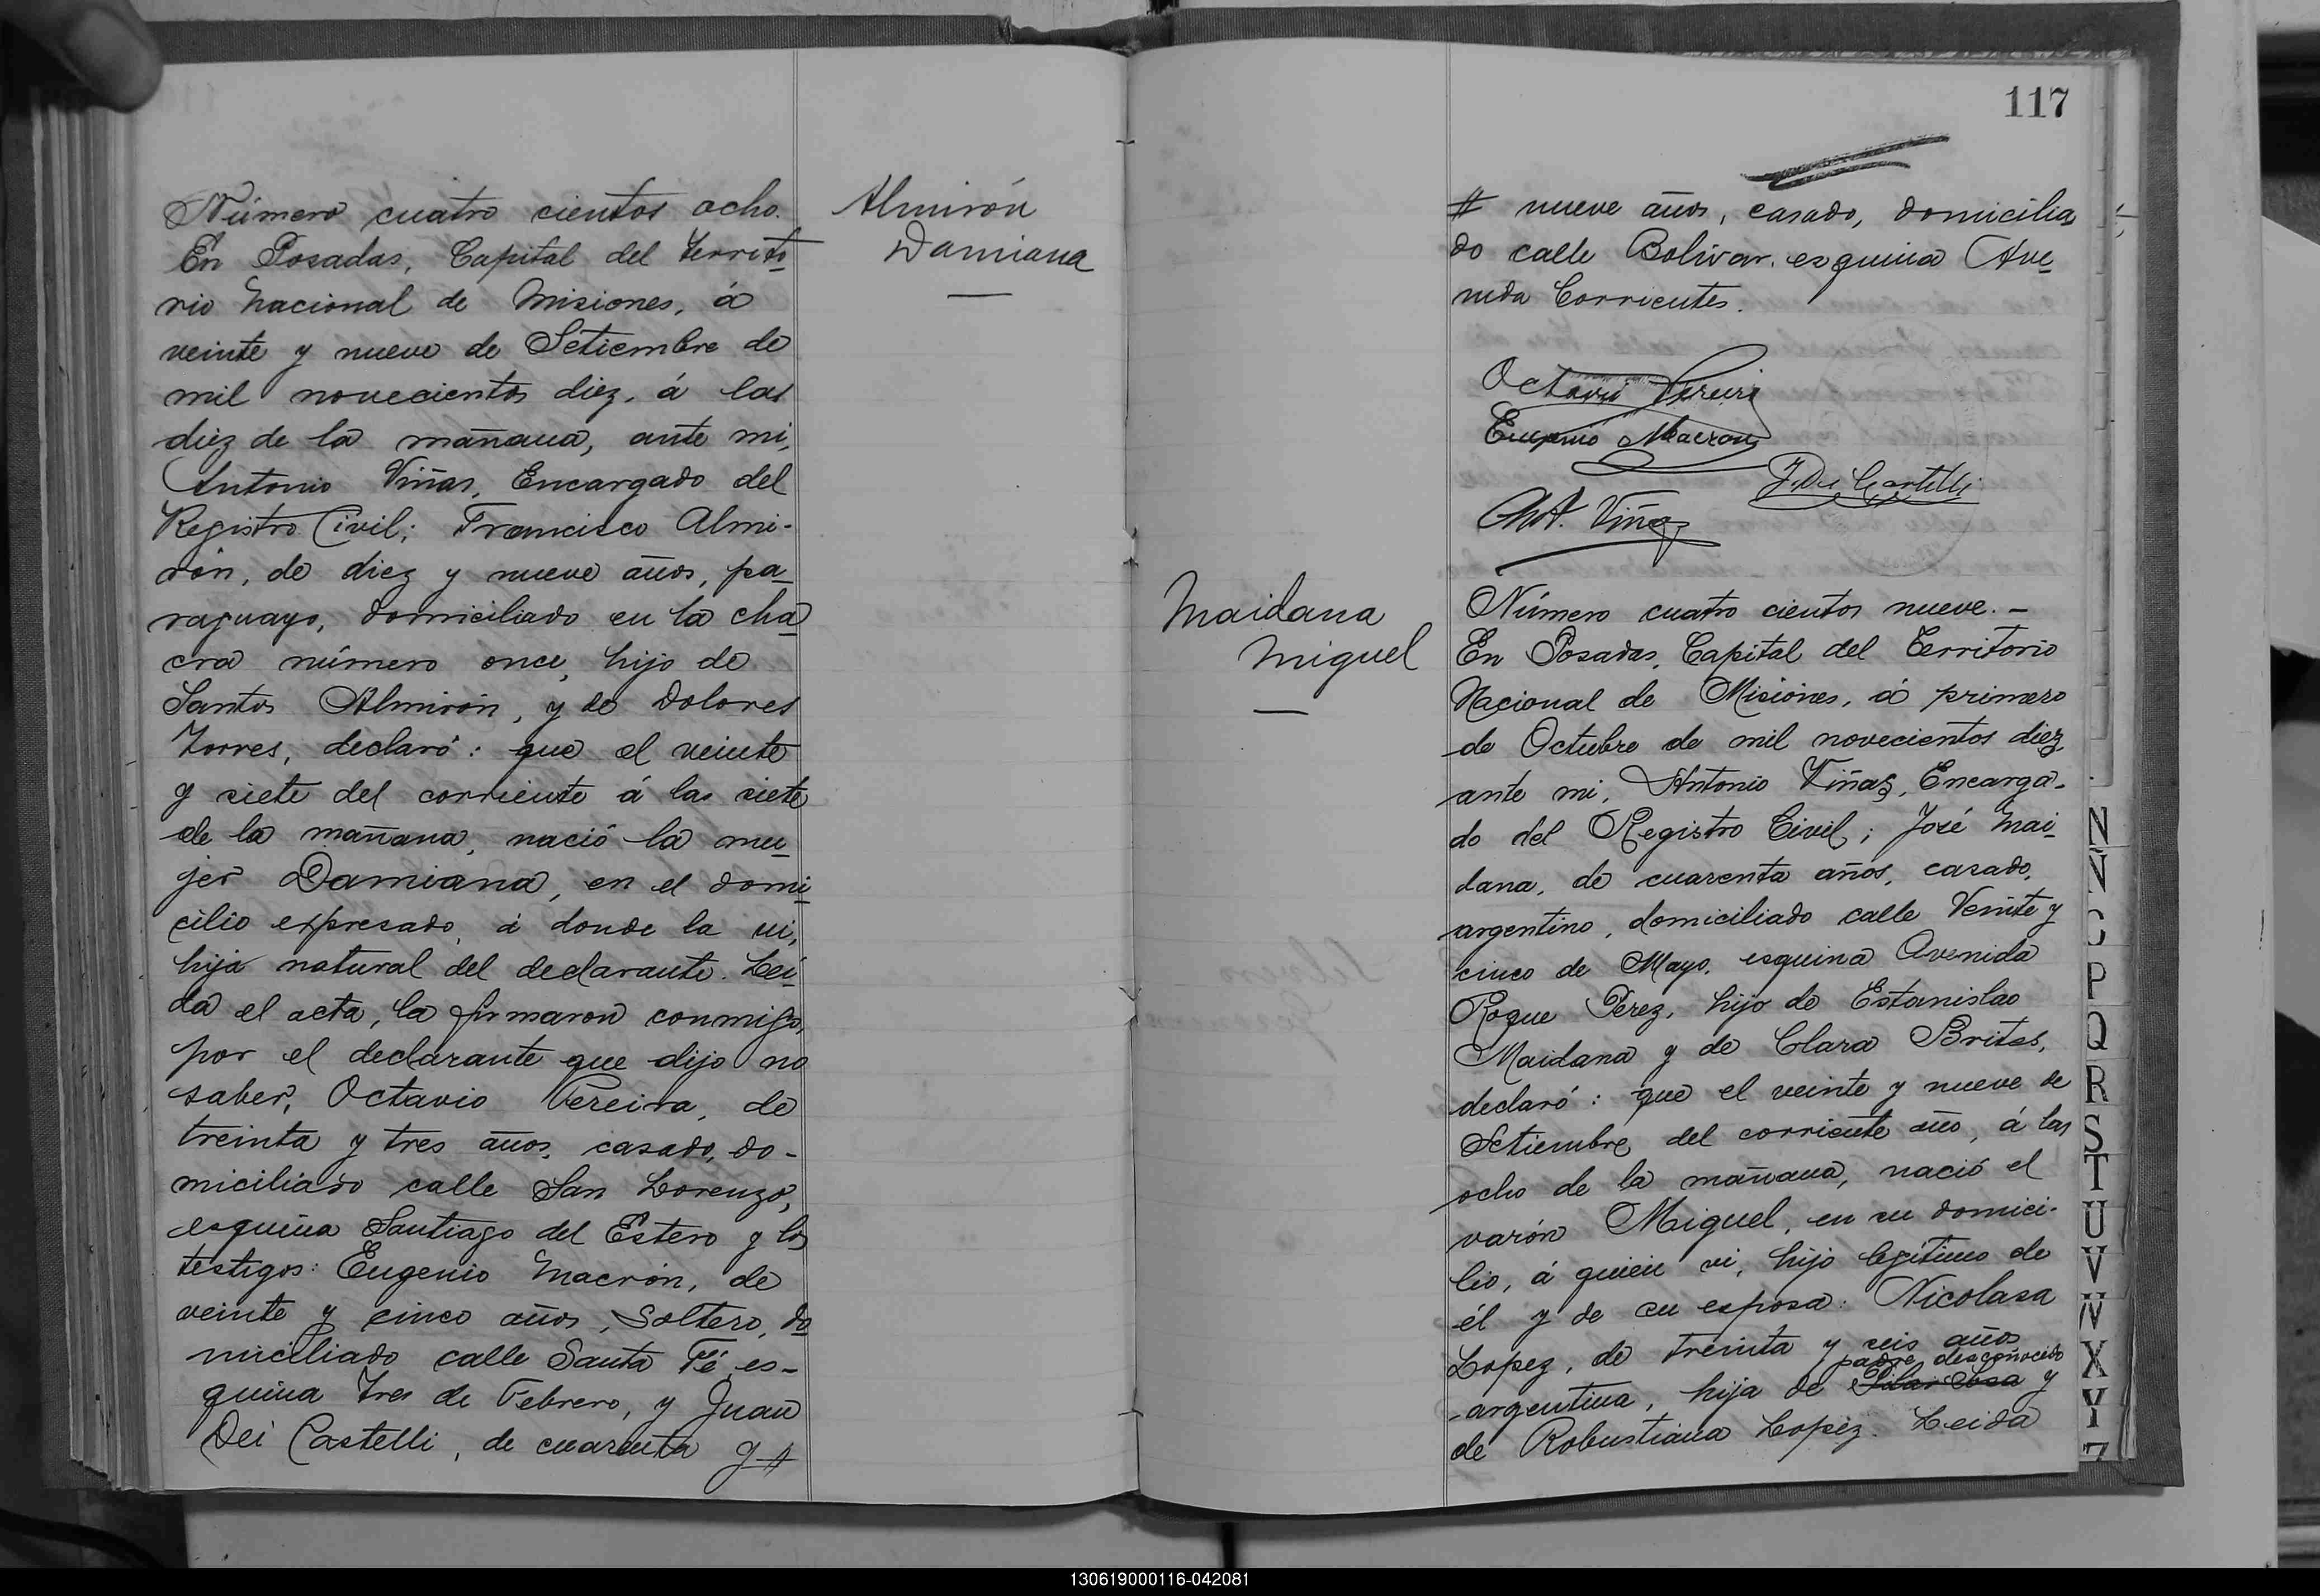 Número cuatro cientos ocho.
En Posadas, Capital del territo
rio Nacional de Misiones, á
veinte y nueve de Setiembre de
mil novecientos diez, á las
diez de la mañana, ante mi,
Antonio Viñas, Encargado del
Registro Civil; Francisco Almi-
rón, de diez y nueve años, pa
raguayo, domiciliado en la cha
cra número once, hijo de
Santos Almirón, y de Dolores
Torres, declaró: que el veinte
y siete del corriente á las siete
de la mañana, nació la mu
jer Damiana, en el domi
cilio expresado, á donde la vi,
hija natural del declarante. Lei
da el acta, la firmaron conmigo,
por el declarante que dijo no
saber, Octavio Pereira, de
treinta y tres años, casado, do-
miciliado calle San Lorenzo,
esquina Santiago del Estero y los
testigos: Eugenio Macrón, de
veinte y cinco años, Soltero, do
miciliado calle Santa Fé es-
quina Tres de Febrero, y Juan
Dei Castelli, de cuarenta y #
Almirón
Damiana
117
# nueve años, casado, domicilia
do calle Bolívar esquina Ave
nida Corrientes.
Octavio Pereira
Eugenio Macrón
J. Dei Castelli
Ant. Viñas
Maidana
Miguel
Número cuatro cientos nueve. -
En Posadas, Capital del Territorio
Nacional de Misiones, á primero
de Octubre de mil novecientos diez,
ante mi, Antonio Viñas, Encarga-
do del Registro Civil; José Mai
dana, de cuarenta años, casado,
argentino, domiciliado calle Veinte y
cinco de Mayo, esquina Avenida
Roque Perez, hijo de Estanislao
Maidana y de Clara Brites,
declaró: que el veinte y nueve de
Setiembre del corriente año, á las
ocho de la mañana, nació el
varón Miguel, en su domici-
lio, á quien vi, hijo legítimo de
él y de su esposa: Nicolasa
Lopez, de treinta y seis años
padre desconocido
argentina, hija de Pilar Sosa y
de Robustiana Lopez. Leida
N
Ñ
O
P
Q
R
S
T
U
V
W
X
Y
Z
130619000116-042081